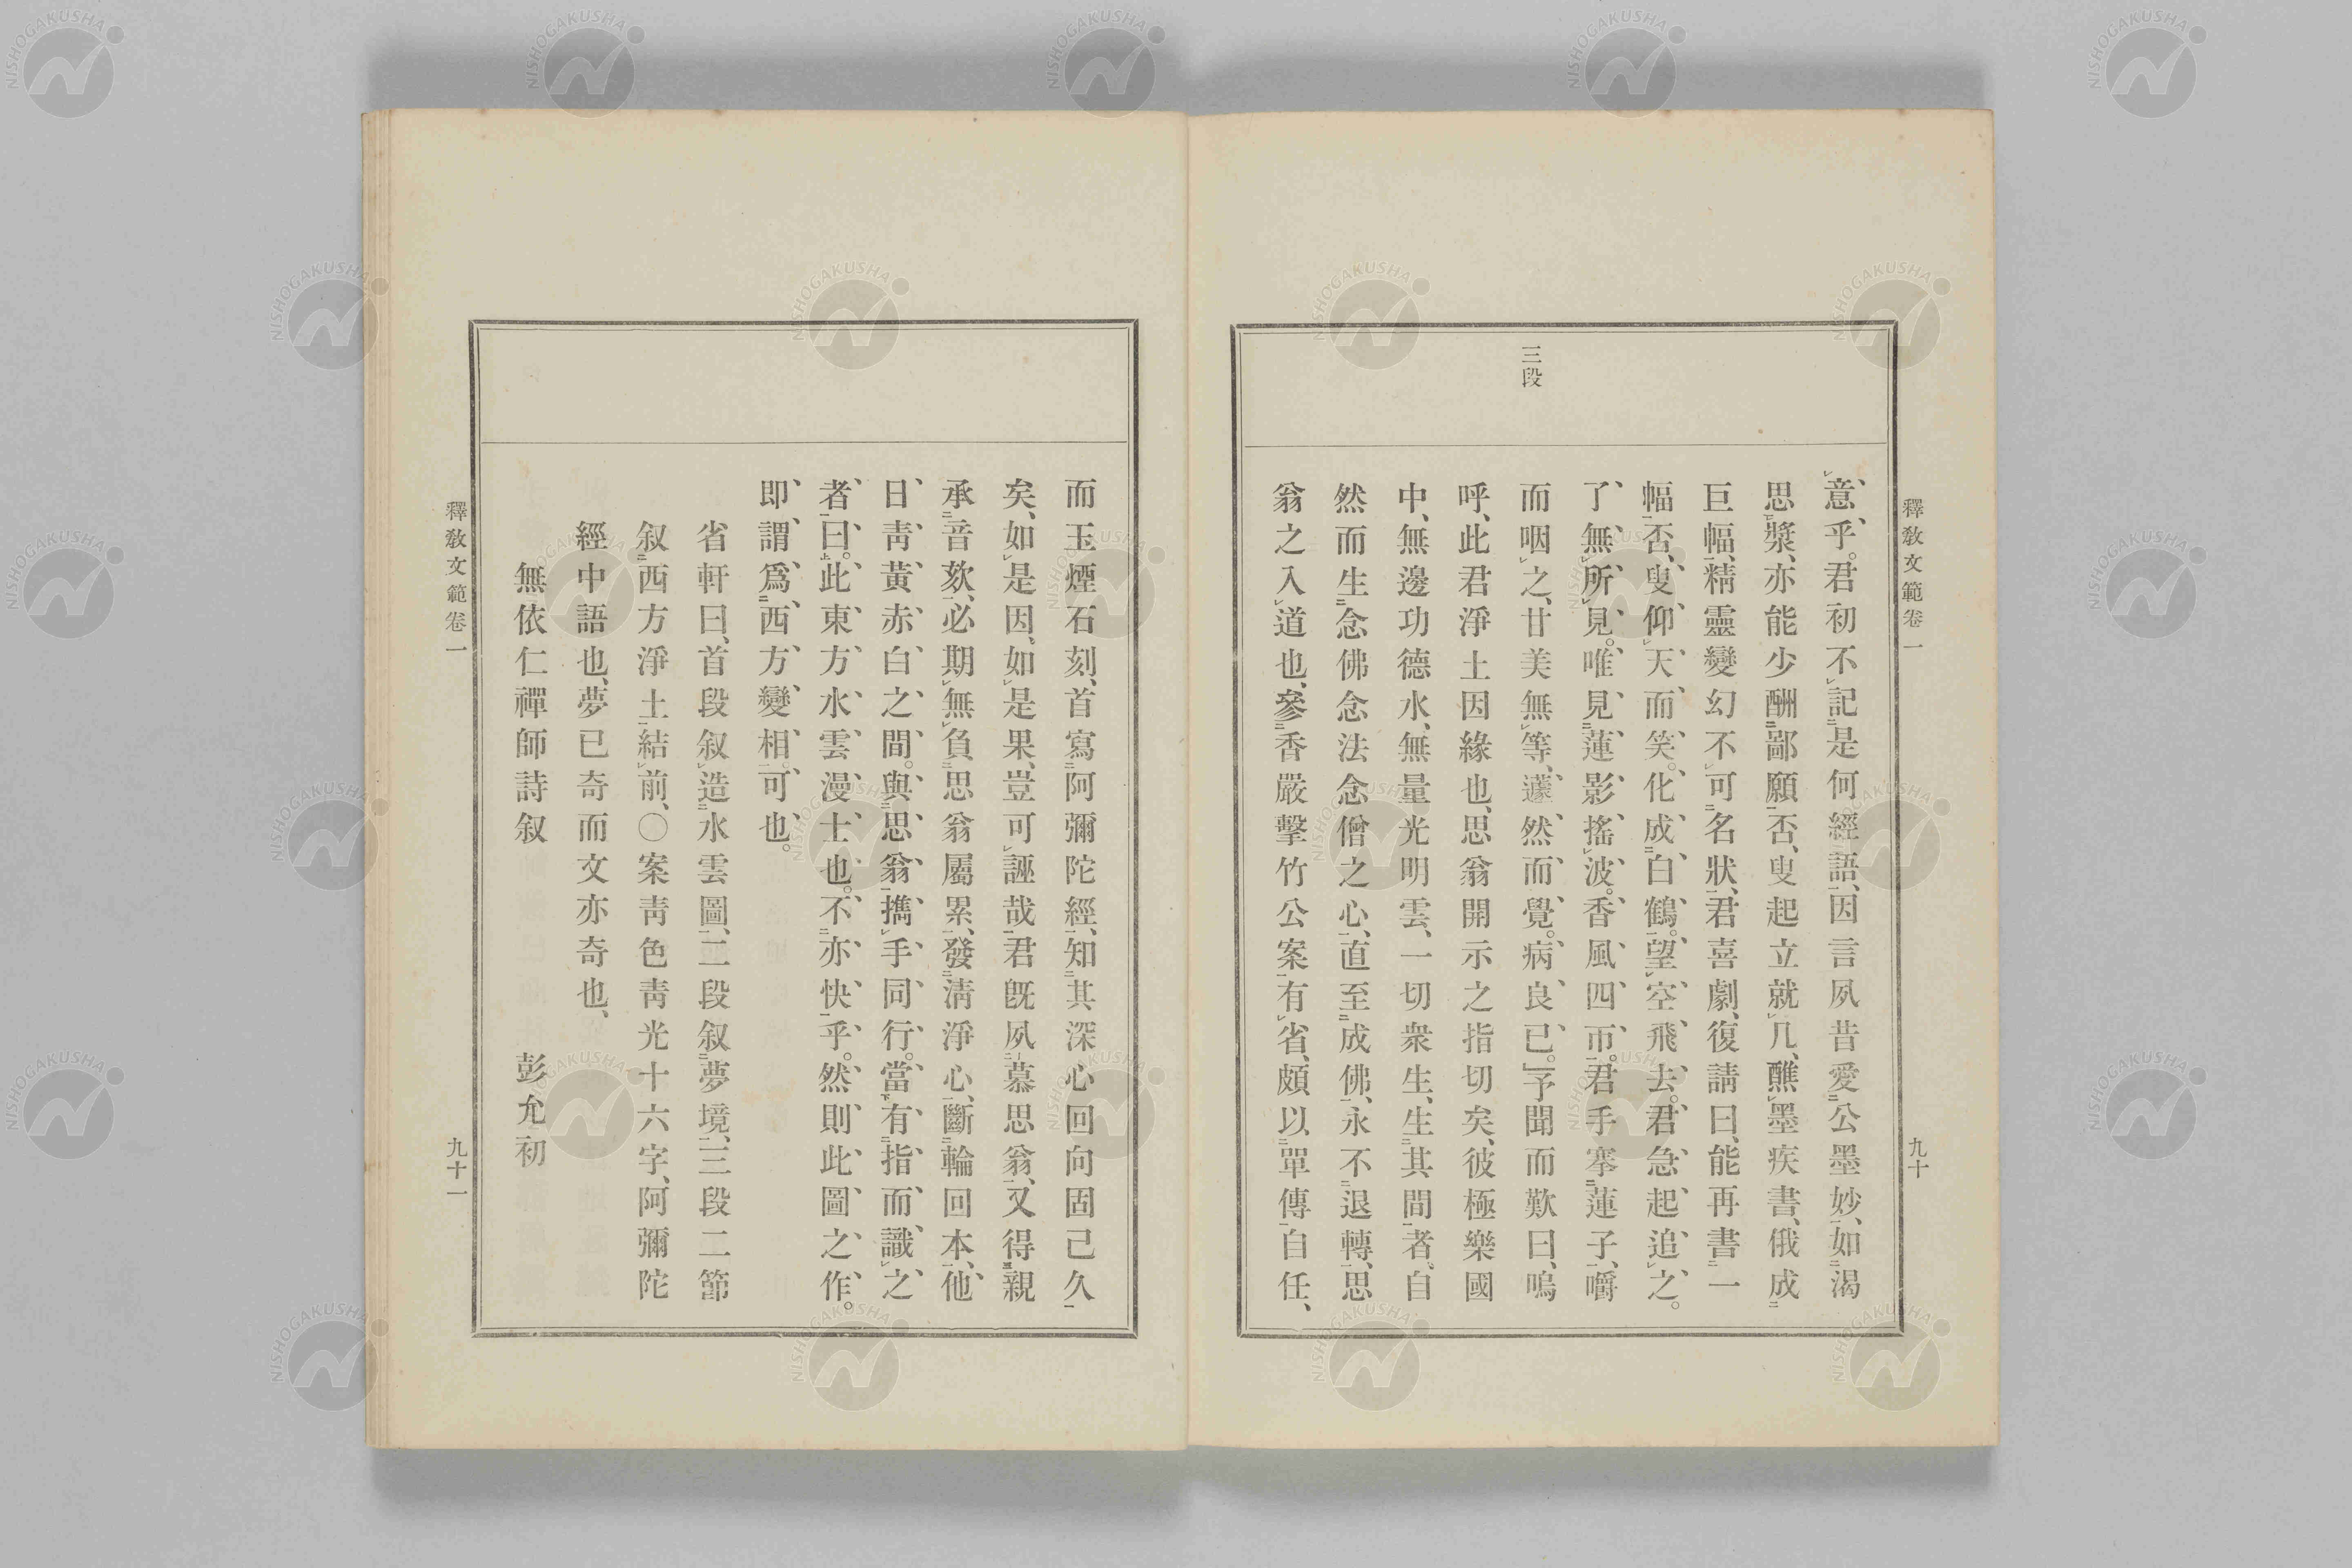 釋敎文範卷一
九十
三段
意乎。君初不記是何經語、因言夙昔愛公墨妙、如渴
思漿、亦能少酬鄙願否、叟起立就几、醮墨疾書、俄成
巨幅、精靈變幻不可名狀、君喜劇、復請曰、能再書一
幅否、叟仰天而笑。化成白鶴。望空飛去。君急起追之。
了無所見。唯見蓮影搖波。香風四帀。君手搴蓮子、嚼
而咽之、甘美無等、蘧然而覺。病良已。」予聞而歎曰、嗚
呼、此君淨土因緣也、思翁開示之指切矣、彼極樂國
中、無邊功德水、無量光明雲、一切衆生、生其間者、自
然而生念佛念法念僧之心、直至成佛、永不退轉、思
翁之入道也、參香嚴擊竹公案有省、頗以單傳自任、
而玉煙石刻、首寫阿彌陀經、知其深心回向固已久
矣、如是因、如是果、豈可誣哉、君旣夙慕思翁、又得親
承音欬、必期無負思翁屬累、發淸淨心、斷輪回本、他
日靑黃赤白之間。與思翁攜手同行。當有指而識之
者曰。此東方水雲漫士也。不亦快乎。然則此圖之作。
卽謂爲西方變相。可也。
省軒曰、首段叙造水雲圖、二段叙夢境、三段二節
叙西方淨土、結前、〇案靑色靑光十六字、阿彌陀
經中語也、夢已奇而文亦奇也、
無依仁禪師詩叙　彭允初
釋敎文範卷一
九十一
NISHOGAKUSHA